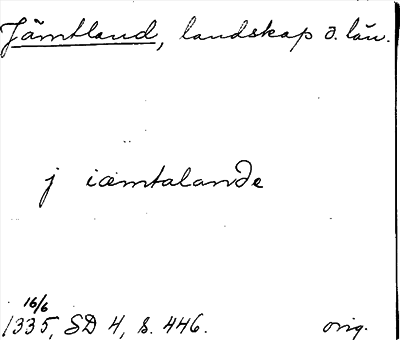 Jämtland, landskap o. län.
j iæmtalande
16/6
1335, SD 4, s. 446. orig.